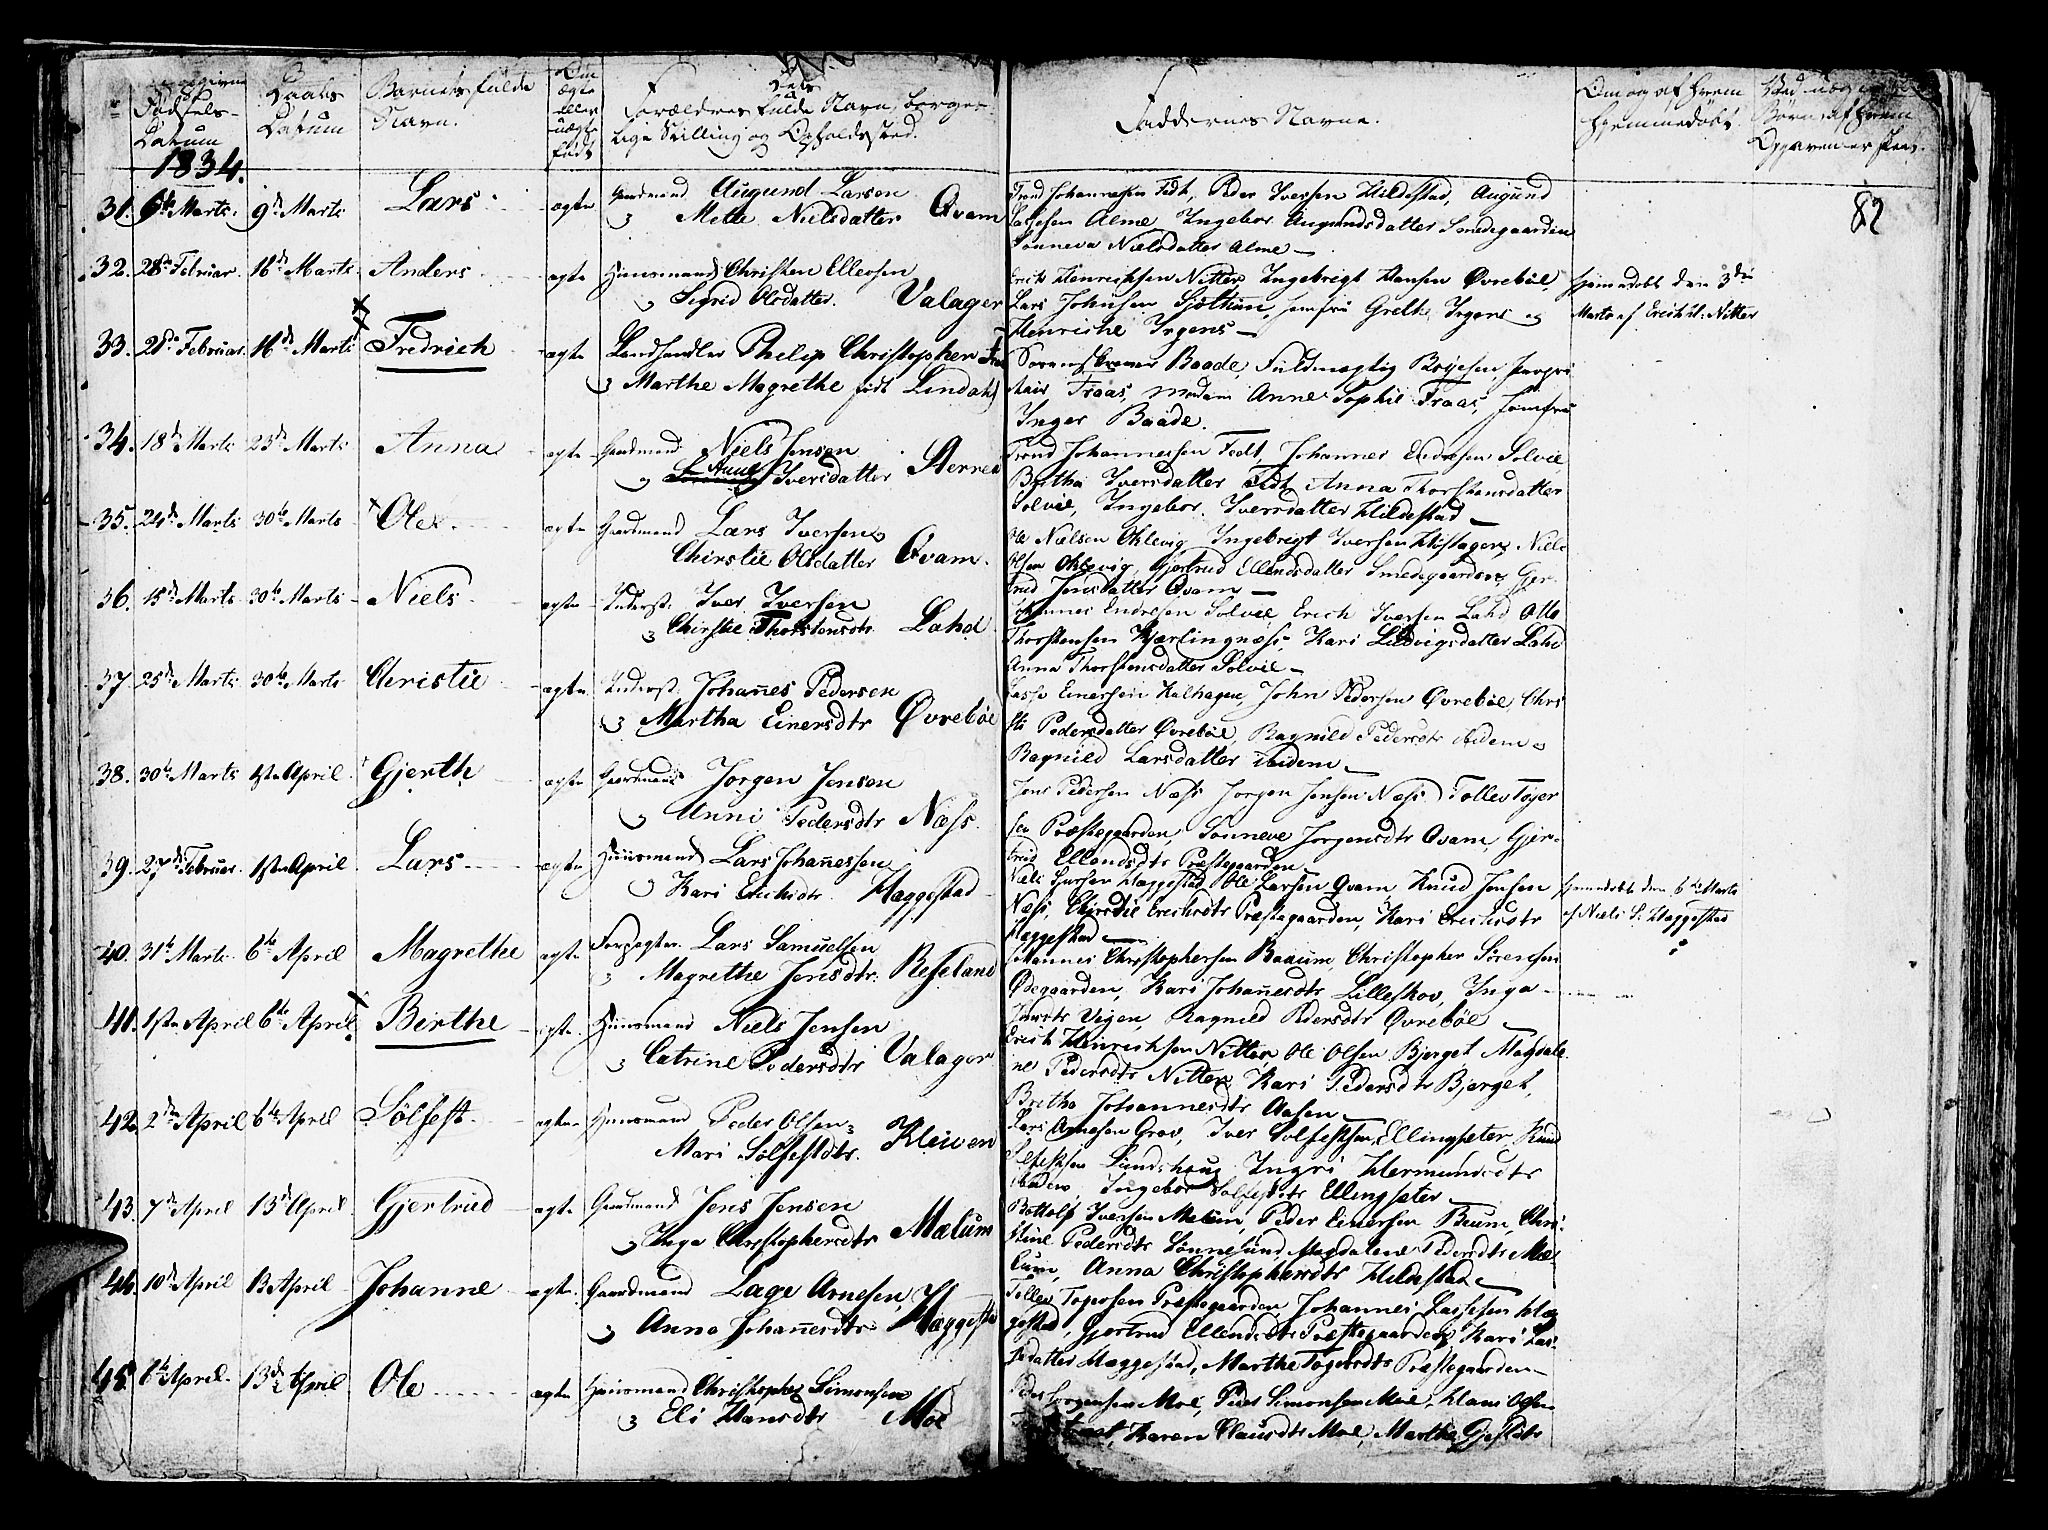 Fødsels-
Datum
Daabs
Datum
Barnets fulde
Navn.
Om
ægte
eller
uægte
født
Forældres fulde Navn, borger-
lige Stilling og Opholdssted.
Faddernes Navne.
Om og af hvem
hjemmedøbt.
1834.
82
31. 6te Marts. 9de Marts Lars ægte Gaardmand Augund Larsen
Mette Nielsdatter Qvam
Trond Johannessen Fedt, Peder Iversen Hildestad, Augund
Lassesen Alme, Ingebor Augundsdatter Smedegaarden
Sønneva Nielsdatter Alme
32. 28de Februar. 16de Marts Anders ægte Huusmand Christen Ellersen
Sigrid Olsdatter. Valager
Erich Henrichsen Nitter, Ingebrigt Hansen Øvrebøe,
Lars Johnsen Sjøthun, Jomfru Grethe Irgens og
Henriche Irgens
Hjemedøbt den 3die
Marts af Erich H. Nitter
33. 28de Februar. 16de Marts Fredrich ægte Landhandler Philip Christopher
Marthe Magrethe født Lindahl
Sorenskriver Baade, Fuldmægtig Boyesen,
Fraas, Madam Anne Sophie Fraas, Jomfru
Inger Baade.
34. 18de Marts 23de Marts Anna ægte Gaardmand Niels Jensen
Anne Iversdatter Sterren
Trond Johannessen Fedt, Johannes Endresen Solvie,
Bertha Iversdatter Fedt, Anna Thorstensdatter
Solvie, Ingebor Iversdatter Hildestad
35. 24de Marts 30te Marts Ole ægte Gaardmand Lars Iversen
Christie Olsdatter Qvam.
Ole Nielsen Oklevig, Ingebrigt Iversen, Niels
Olsen Oklevig, Gjertrud Ellendsdatter Smedegaarden, Gjer-
trud Jensdatter Qvam
36. 15de Marts 30te Marts Niels ægte Inderst. Iver Iversen
Christie Thorstensdtr. Lahd
Johannes Endresen Solvie, Erich Iversen Lahd, Otte
Thorstensen Kjærlingnæss, Kari Ludvigsdatter Lahd
Anna Thorstensdatter Solvie
37. 25de Marts 30te Marts Christie ægte. Inderst. Johañes Pedersen
Martha Einersdtr Øvrebøe
Lasse Einersen Kalhagen, John Pedersen Øvrebøe, Chri-
sti Pedersdatter Øvrebøe, Ragnild Pedersdtr ibidem
Ragnild Larsdatter ibidem
38. 30te Marts 1ste April. Gjerth ægte Gaardmand Jørgen Jensen
Anni Pedersdtr Næss.
Jens Pedersen Næss, Jørgen Jensen Næss, Tollev Tøger
sen Præstegaarden, Sønneve Jørgensdtr Qvam, Gjer-
trud Ellendsdtr Præstegaarden
39. 27de Februar. 1ste April Lars ægte Huusmand Lars Johañessen
Kari Erichsdtr. Hæggestad
Niels Hæggestad, Ole Larsen Qvam, Knud Jensen
Næss, Christie Erichsdtr Præstegaarden, Kari Erichsdtr
Hæggestad
Hjemedøbt den 6te Marts
af Niels S. Hæggestad
40. 31te Marts. 6te April Magrethe ægte Forpagter. Lars Samuelsen
Magrethe Jensdtr. Reseland
Hannes Christophersen Baaum, Christopher Sørensen
Ødegaarden, Kari Johañesdtr Lilleskov, Inga
Vigen, Ragnild Pedersdtr Øvrebøe
41. 1ste April 6te April Birthe ægte. Huusmand Niels Jensen
Catrine Pedersdtr Valager
Erich Henrichsen Nitter, Ole Olsen Bjerget, Magdale
ne Pedersdtr Nitter, Kari Pedersdtr Bjerget,
Bretha Johannesdtr Aasen
42. 2den April 6te April Sølfest ægte Huusmand Peder Olsen
Mari Sølfestdtr. Kleiven
Lars Arnesen Grov, Iver Sølfestsen Ellingseter, Knud
Sølfestsen Sundshaug, Ingri Hermundsdtr
Ingebor Sølfestdtr Ellingseter
43. 7de April 13de April Gjertrud ægte Gaardmand Jens Jensen
Inga Christophersdtr Mælum
Bottolf Iversen Mælum, Peder Einersen Baum, Chri-
stine Pedersdtr Lønnesund, Magdalene Pedersdtr Mæ-
lum, Anna Christophersdtr Hildestad
44. 10de April 13 April Johanne ægte. Gaardmand Lage Arnesen
Anna Johañesdtr Hæggestad
Tollev Togersen Præstegaarden, Johannes Lassesen Hæg
gestad, Gjertrud Ellendsdtr Præstegaarden, Kari Las-
sedatter Hæggestad, Marthe Togersdtr Præstegaarden
45. April. 13de April Ole ægte Huusmand Christopher Simonsen
Eli Hansdtr Moe
Peder Jørgensen Moe, Peder Simonsen Moe, Hans Olsen
Karen Clausdtr Moe, Marthe